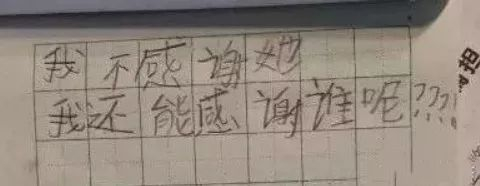 我不感谢她
我还能感谢谁呢???!